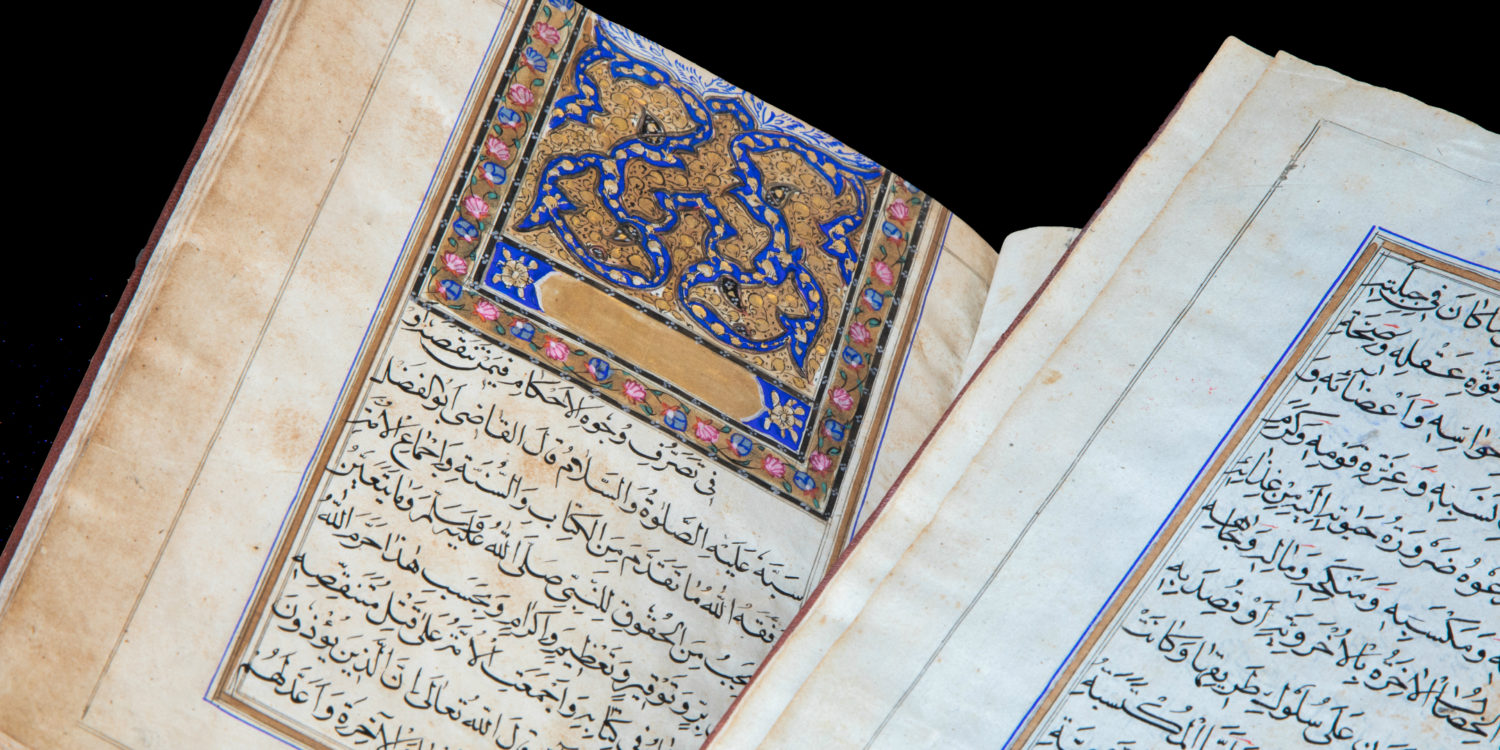 فى تصرف وجوه الاحكام فيمن تنقصه او
سبه عليه الصلوة والسلام قال القاضى ابو الفضل
وفقه الله ما تقدم من الكتاب والسنة واجماع الامة
يجب من الحقوق للنبى صلى الله عليه وسلم وما يتعين
بر وتوقير وتعظيم واكرام وبحسب هذا حرم الله
فى كتابه واجمعت الامة على قتل متنقصه
قال الله تعالى ان الذين يؤذون
الآخرة واعد لهم
كان فى جبلته
وقوة عقله وصحة
حواسه واعضائه و
نسبه وعزة قومه وكرم
ضرورة حيوته اليه من غذائه
ومكسبه ومنكحه وماله وجاهه
الاخرة بالاخروية او قصد به
على سلوك طريقها وكانت
المكتسبة